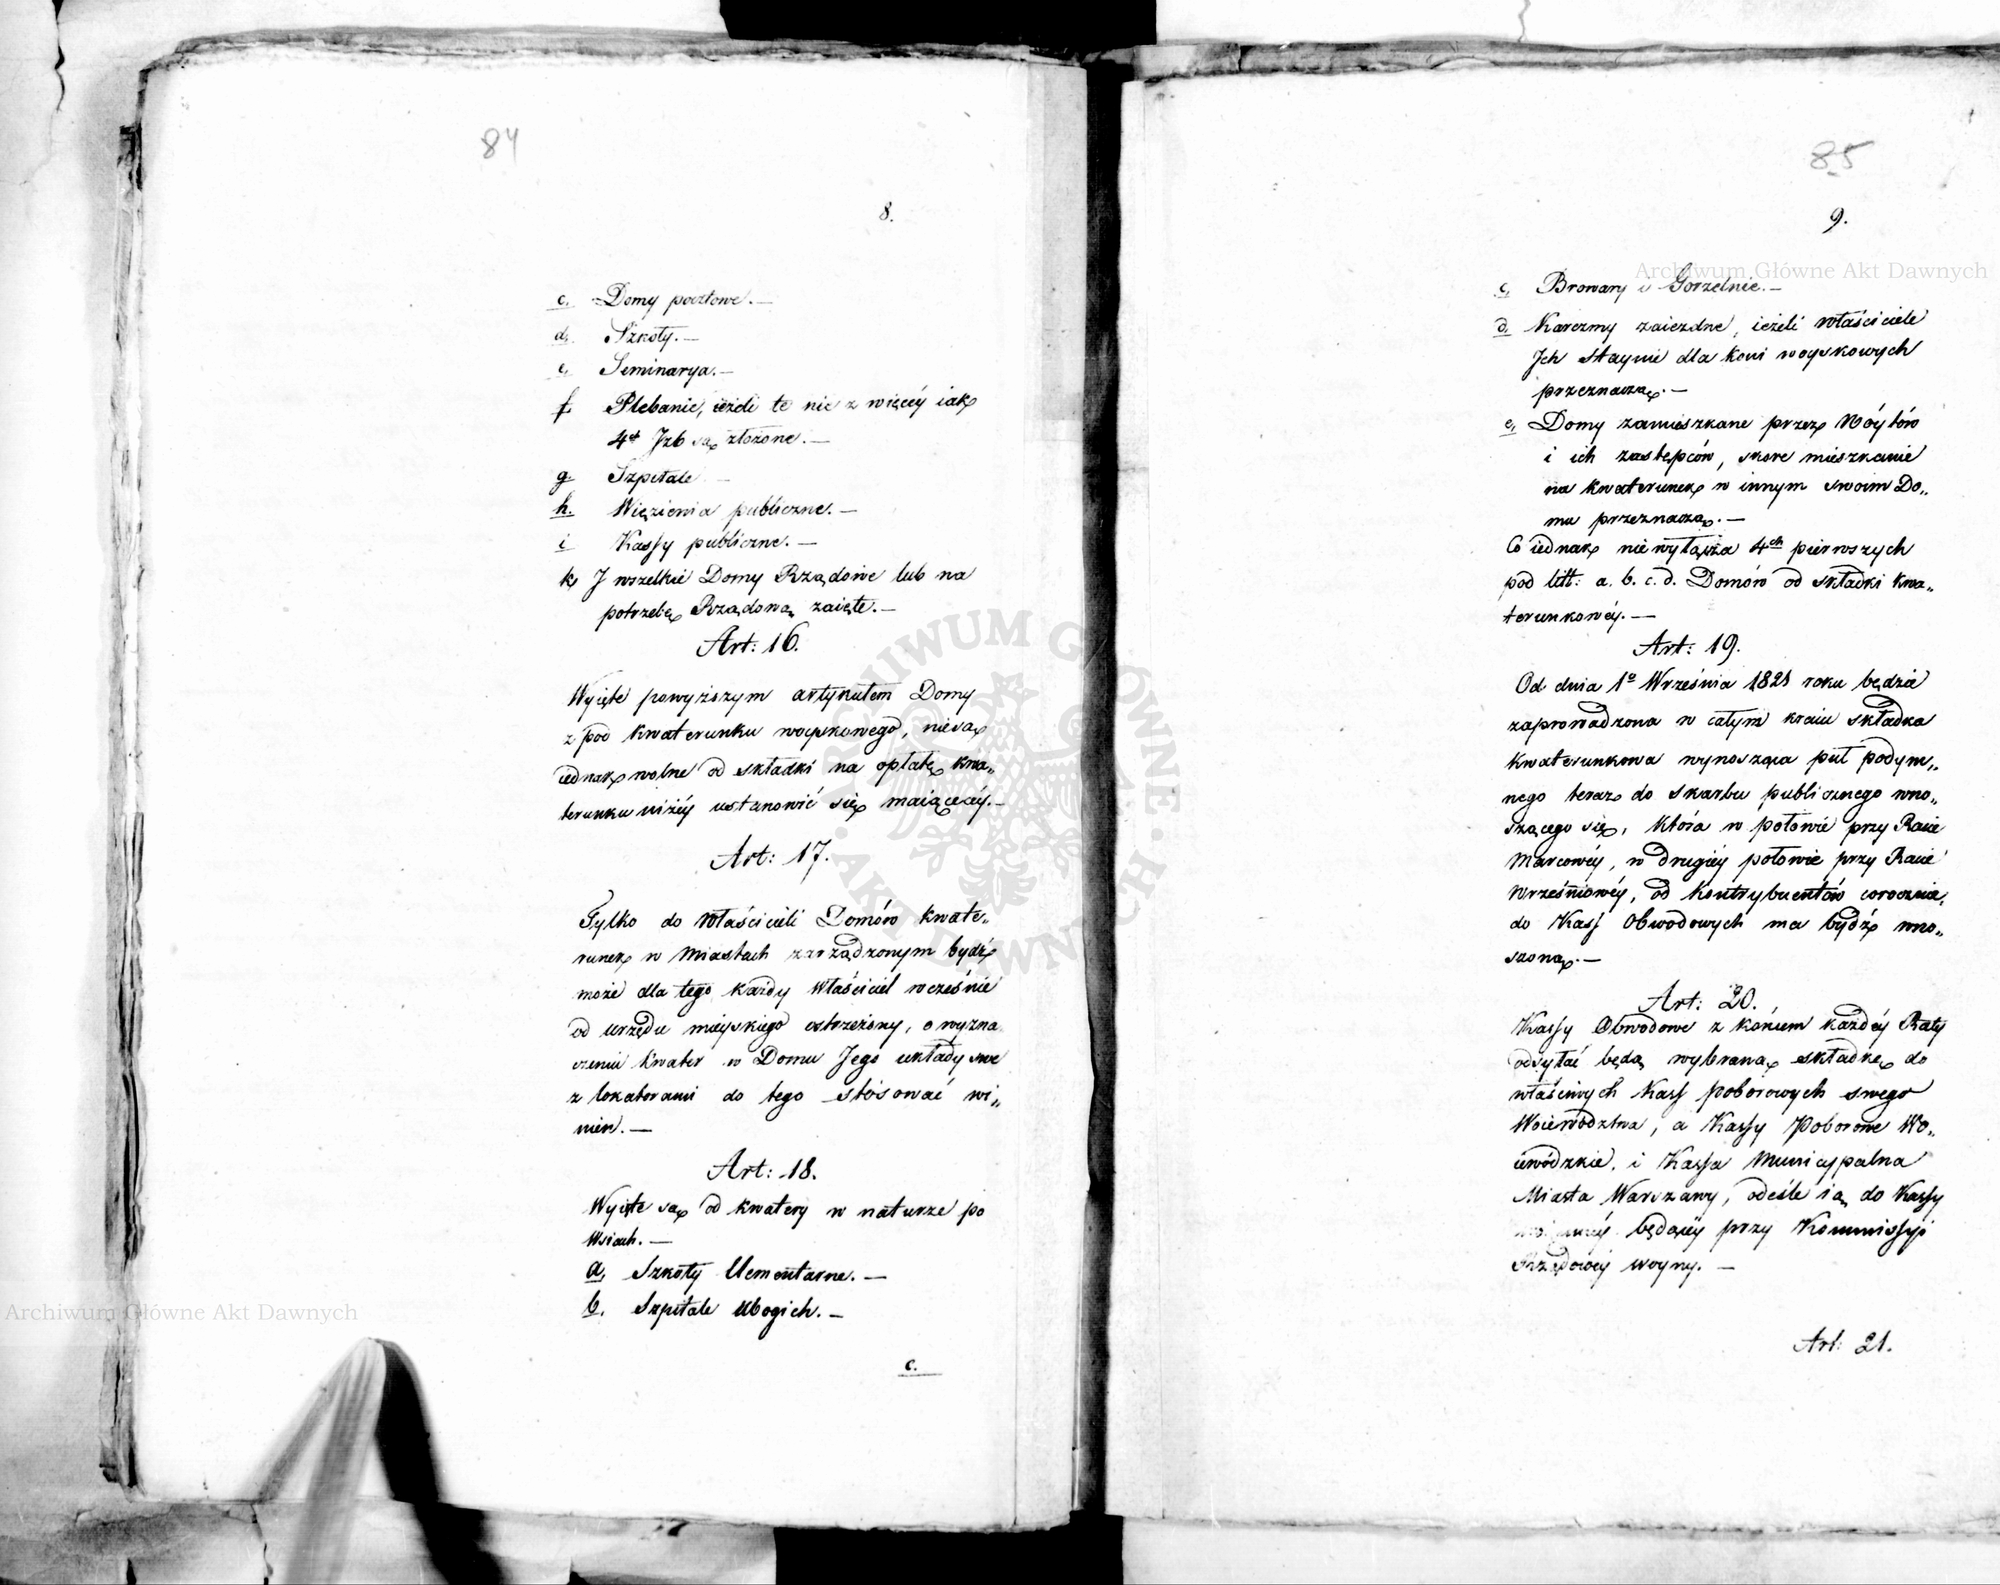 84
8.
c. Domy pocztowe. —
d. Szkoły. —
e. Seminarya. —
f. Plebanie, ieżeli te nie z więcéy iak
4ch Izb są złożone. —
g. Szpitale —
h. Więzienia publiczne. —
i Kassy publiczne. —
k. I wszelkie Domy Rządowe lub na
potrzebę Rządową zaięte. —
Art: 16.
Wyięte powyższym artykułem Domy
z pod kwaterunku woyskowego, nie są
iednak wolne od składki na opłatę kwa„
terunku niżéy ustanowić się maiącéy. —
Art: 17.
Tylko do właścicieli Domów kwate„
runek w Miastach zarządzonym bydź
może dla tego każdy Właściciel wcześnie
od urzędu mieyskiego ostrzeżony, o wyzna
czeniu kwater w Domu Jego układy swe
z lokatorami do tego stosować wi„
nien. —
Art: 18.
Wyięte są od kwatery w naturze po
Wsiach. —
a. Szkoły Elementarne. —
b. Szpitale Ubogich. —
c.
85
9.
c. Browary i Gorzelnie. —
d. Karczmy zaiezdne, ieżeli właściciele
Ich staynie dla koni woyskowych
przeznaczą. —
e. Domy zamieszkane przez Wóytów
i ich zastępców, skoro mieszkanie
na kwaterunek w innym swoim Do„
mu przeznaczą. —
Co iednak nie wyłącza 4ch pierwszych
pod litt: a. b. c. d. Domów od składki kwa„
terunkowéy. —
Art: 19.
Od dnia 1o Września 1821 roku będzie
zaprowadzona w całym kraiu składka
kwaterunkowa wynosząca pół podym„
nego teraz do skarbu publicznego wno„
szącego się, która w połowie przy Racie
Marcowéy, w drugiéy połowie przy Racie
Wrześniowéy, od Kontrybuentów corocznie
do Kass Obwodowych ma bydź wno„
szoną. —
Art: 20.
Kassy Obwodowe z końcem każdéy Raty
odsyłać będą wybraną składkę do
właściwych Kass poborowych swego
Woiewództwa, a Kassy Poborowe Wo„
iewódzkie, i Kassa Municypalna
Miasta Warszawy, odeśle ią do Kassy
będącéy przy Kommissyi
Rządowéy woyny. —
Art: 21.
Archiwum Główne Akt Dawnych
Archiwum Główne Akt Dawnych
ARCHIWUM GŁÓWNE AKT DAWNYCH